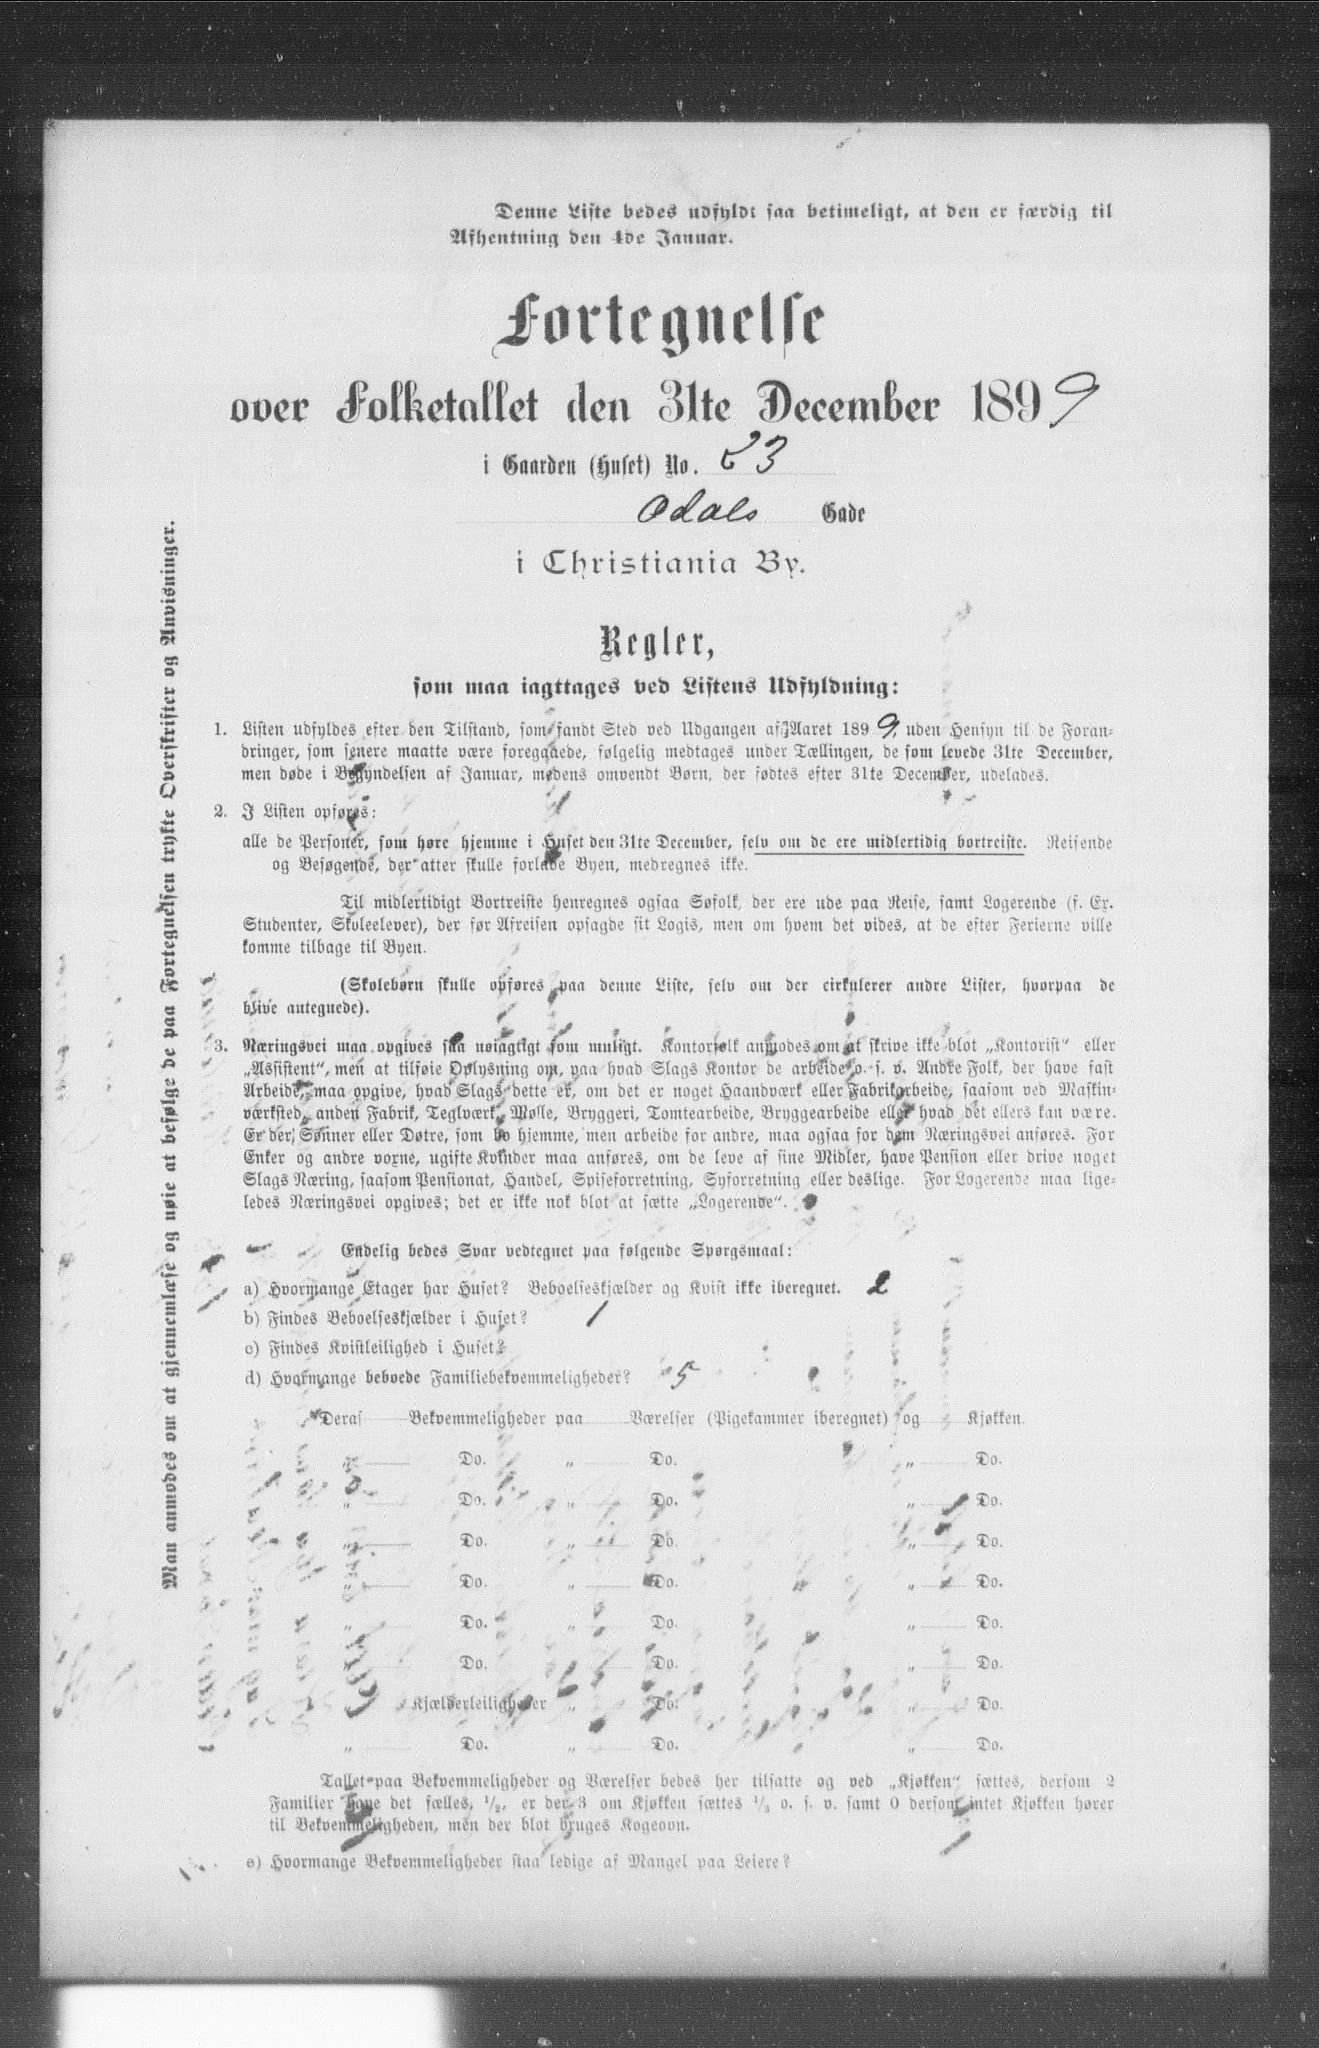 Denne Liste bedes udfyldt saa betimeligt, at den er færdig til
Afhentning den 4de Januar.
Fortegnelse
over Folketallet den 31te December 1899
i Gaarden (Huset) No. 23
Odals Gade
i Christiania By.
Regler,
som maa iagttages ved Listens Udfyldning:
1. Listen udfyldes efter den Tilstand, som fandt Sted ved Udgangen af Aaret 1899, uden Hensyn til de Foran-
dringer, som senere maatte være foregaaede, følgelig medtages under Tællingen, de som levede 31te December,
men døde i Begyndelsen af Januar, medens omvendt Børn, der fødtes efter 31te December, udelades.
2. I Listen opføres:
alle de Personer, som høre hjemme i Huset den 31te December, selv om de ere midlertidig bortreiste. Reisende
og Besøgende, der atter skulle forlade Byen, medregnes ikke.
Til midlertidigt Bortreiste henregnes ogsaa Søfolk, der ere ude paa Reise, samt Logerende (f. Ex.
Studenter, Skoleelever), der før Afreisen opsagde sit Logis, men om hvem det vides, at de efter Ferierne ville
komme tilbage til Byen.
(Skolebørn skulle opføres paa denne Liste, selv om der cirkulerer andre Lister, hvorpaa de
blive antegnede).
3. Næringsvei maa opgives saa nøiagtigt som muligt. Kontorfolk anmodes om at skrive ikke blot „Kontorist“ eller
„Assistent“, men at tilføie Oplysning om, paa hvad Slags Kontor de arbeide o. s. v. Andre Folk, der have fast
Arbeide, maa opgive, hvad Slags dette er, om det er noget Haandværk eller Fabrikarbeide, saasom ved Maskin-
værksted, anden Fabrik, Teglværk, Mølle, Bryggeri, Tomtearbeide, Bryggearbeide eller hvad det ellers kan være.
Er der Sønner eller Døtre, som bo hjemme, men arbeide for andre, maa ogsaa for dem Næringsvei anføres. For
Enker og andre voxne, ugifte Kvinder maa anføres, om de leve af sine Midler, have Pension eller drive noget
Slags Næring, saasom Pensionat, Handel, Spiseforretning, Syforretning eller deslige. For Logerende maa lige-
ledes Næringsvei opgives; det er ikke nok blot at sætte „Logerende“.
Endelig bedes Svar vedtegnet paa følgende Spørgsmaal:
a) Hvormange Etager har Huset? Beboelseskjælder og Kvist ikke iberegnet. 2
b) Findes Beboelseskjælder i Huset? 1
c) Findes Kvistleilighed i Huset?
d) Hvormange beboede Familiebekvemmeligheder? 5
Deraf Bekvemmeligheder paa Værelser (Pigekammer iberegnet) og Kjøkken.
„ Do. „ Do. „ Do.
„ Do. „ Do. „ Do.
„ Do. „ Do. „ Do.
„ Do. „ Do. „ Do.
„ Do. „ Do. „ Do.
„ Do. „ Do. „ Do.
Kjælderleiligheder „ Do. „ Do.
„ Do. „ Do. „ Do.
Tallet paa Bekvemmeligheder og Værelser bedes her tilsatte og ved „Kjøkken“ sættes, dersom 2
Familier have det fælles, 1/2, er der 3 om Kjøkken sættes 1/3 o. s. v. samt 0 dersom intet Kjøkken hører
til Bekvemmeligheden, men der blot bruges Kogeovn.
e) Hvormange Bekvemmeligheder staa ledige af Mangel paa Leiere?
Man anmodes om at gjennemlæse og nøie at befølge de paa Fortegnelsen trykte Overskrifter og Anvisninger.